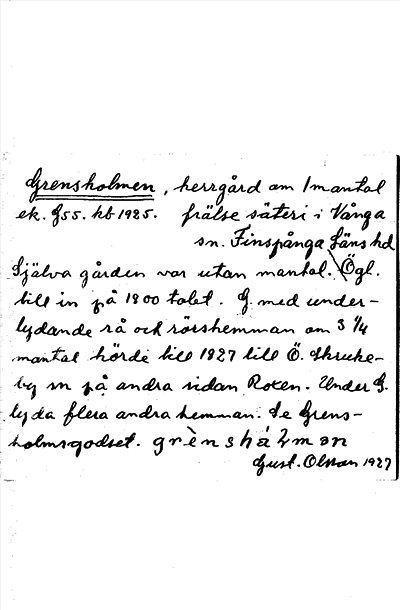 Grensholmen, herrgård om 1 mantal
ek. 955. kb 1925. frälse säteri i Vånga
sn. Finspånga läns hd
Själva gården var utan mantal. Ögl.
till in på 1800 talet. G. med under-
lydande rå och rörshemman om 3 1/4
mantal hörde till 1827 till Ö. Skruke-
by sn på andra sidan Roxen. Under G.
lyda flera andra hemman. Se Grens-
holmsgodset. grènshálman
Gust. Olsson 1927